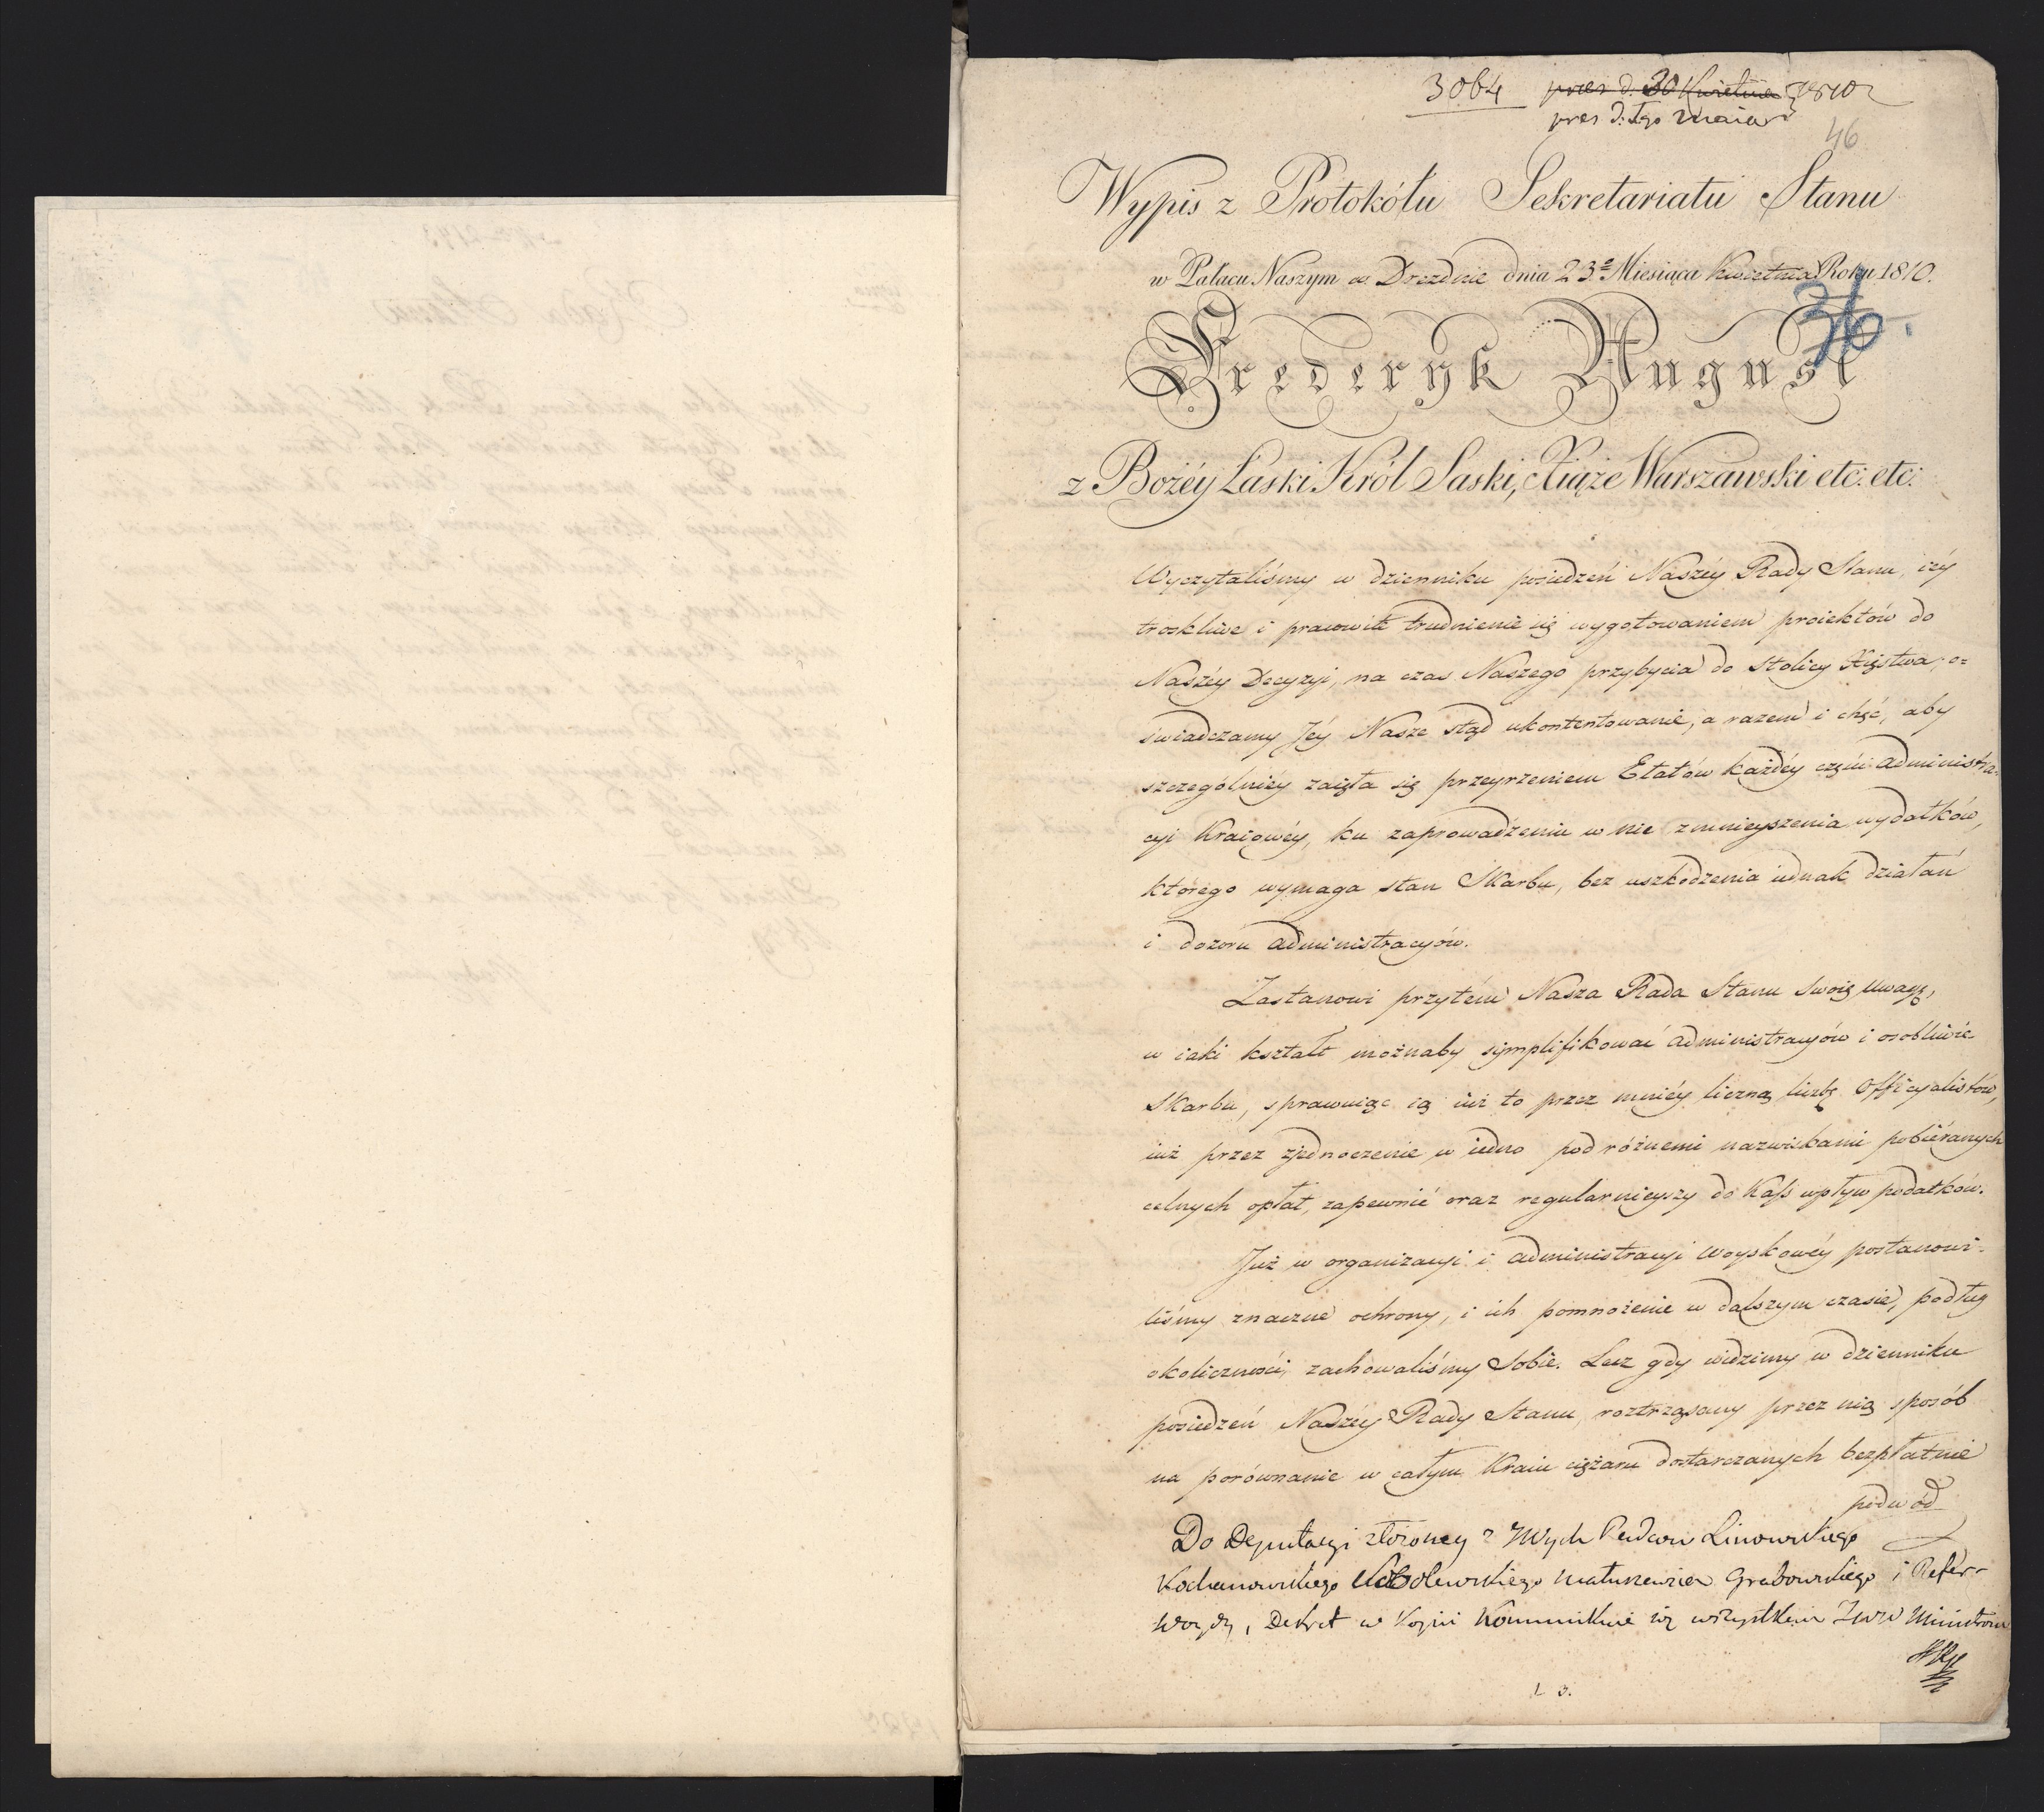 3064 pres d. 30 Kwietnia 1810
pres d. 1go Maia
46
Wypis z Protokółu Sekretariatu Stanu
w Pałacu Naszym w Dreznie dnia 23º Miesiąca Kwietnia Roku 1810.
36.
Fryderyk August
z Bożéy Łaski Król Saski, Xiąże Warszawski etc: etc:
Wyczytaliśmy w dzienniku posiedzeń Naszéy Rady Stanu, iéy
troskliwe i pracowite trudnienie się wygotowaniem proiektów do
Naszéy Decyzyi, na czas Naszego przybycia do Stolicy Xięstwa; o=
świadczamy Jéy Nasze stąd ukontentowanie, a razem i chęć, aby
szczególniéy zaięła się przeyrzeniem Etatów każdéy części administra=
cyi Kraiowéy, ku zaprowadzeniu w nie zmnieyszenia wydatków,
którego wymaga stan Skarbu, bez uszkodzenia iednak działań
i dozoru administracyów.
Zastanowi przytém Nasza Rada Stanu swoię uwagę,
w iaki kształt możnaby symplifikować administracyów i osobliwie
Skarbu, sprawuiąc ią iuż to przez mniéy liczną liczbę Officyalistów,
iuż przez zjednoczenie w iedno pod różnemi nazwiskami pobiéranych
celnych opłat, zapewnić oraz regularnieyszy do Kass wpływ podatków.
Już w organizacyi i administracyi woyskowéy postanowi-
liśmy znaczne ochrony, i ich pomnożenie w dalszym czasie, podług
okoliczności, zachowaliśmy Sobie. Lecz gdy widzimy w dzienniku
posiedzeń Naszéy Rady Stanu, roztrząsany przez nią sposób
na porównanie w całym Kraiu ciężaru dostarczanych bezpłatnie
podwód
Do Deputacyi złożoney z JWych Radców Linowskiego
Kochanowskiego Sobolewskiego Matuszewica Grabowskiego i Refer-
Dekret w Kopii Kommunikuie się wszystkim JWW Ministrom